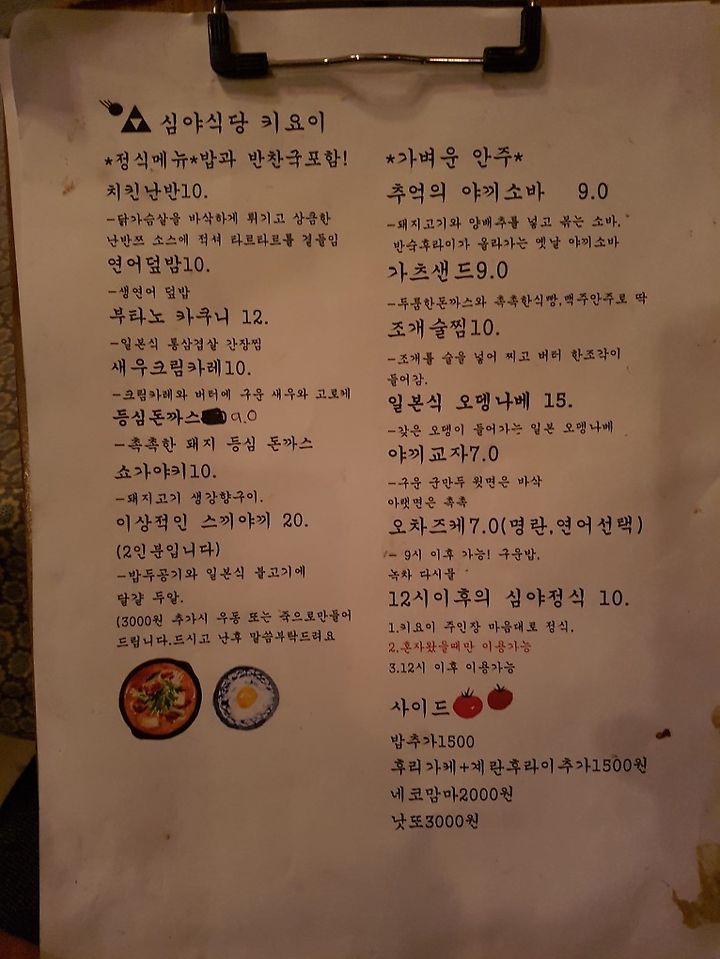 심야식당 키요이
*정식메뉴*밥과 반찬국포함!
치킨난반10.
-닭가슴살을 바삭하게 튀기고 상큼한
난반쯔 소스에 적셔 타르타르를 곁들임
연어덮밥10.
-생연어 덮밥
부타노 카쿠니 12.
-일본식 통삼겹살 간장찜
새우크림카레10.
-크림카레와 버터에 구운 새우와 고로케
등심돈까스 9.0
-촉촉한 돼지 등심 돈까스
쇼가야키10.
-돼지고기 생강향구이.
이상적인 스끼야끼 20.
(2인분입니다)
-밥두공기와 일본식 불고기에
달걀 두알.
(3000원 추가시 우동 또는 죽으로만들어
드립니다.드시고 난후 말씀부탁드려요
*가벼운 안주*
추억의 야끼소바 9.0
-돼지고기와 양배추를 넣고 볶는 소바.
반숙후라이가 올라가는 옛날 야끼소바
가츠샌드9.0
-두툼한돈까스와 촉촉한식빵,맥주안주로 딱
조개술찜10.
-조개를 술을 넣어 찌고 버터 한조각이
들어감.
일본식 오뎅나베 15.
-갖은 오뎅이 들어가는 일본 오뎅나베
야끼교자7.0
-구운 군만두 윗면은 바삭
아랫면은 촉촉
오차즈케7.0(명란,연어선택)
- 9시 이후 가능! 구운밥,
녹차 다시물
12시이후의 심야정식 10.
1.키요이 주인장 마음대로 정식.
2.혼자왔을때만 이용가능
3.12시 이후 이용가능
사이드
밥추가1500
후리가케+계란후라이추가1500원
네코맘마2000원
낫또3000원